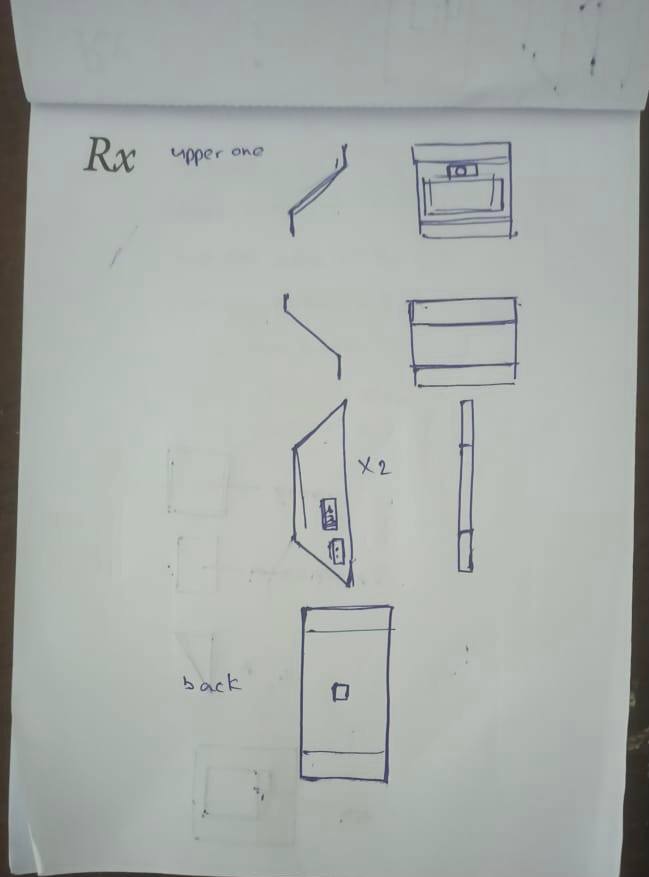 Rx upper one
x2
back